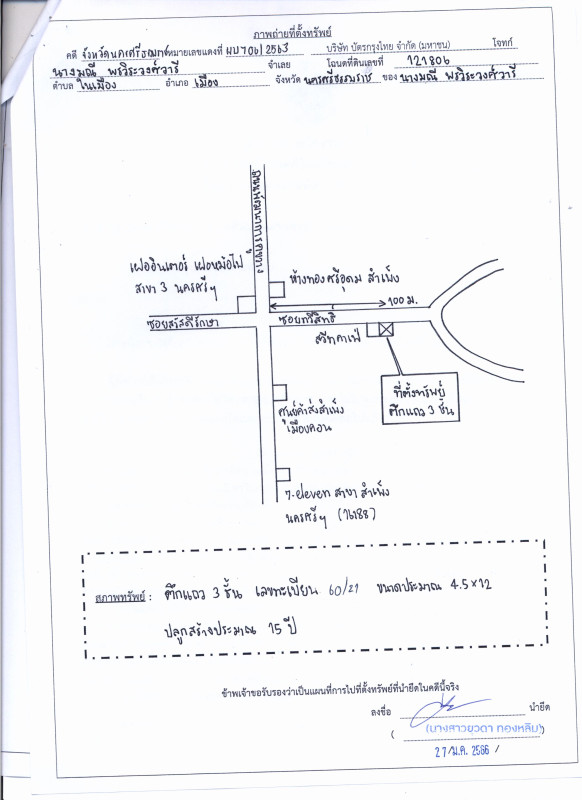 ภาพถ่ายที่ตั้งทรัพย์
คดี จังหวัดนครศรีธรรมราช หมายเลขแดงที่ ผบ706/2563 บริษัท บัตรกรุงไทย จำกัด (มหาชน) โจทก์
นางมณี พรวิระวงศ์วารี จำเลย โฉนดที่ดินเลขที่ 121806
ตำบล ในเมือง อำเภอ เมือง จังหวัด นครศรีธรรมราช ของ นางมณี พรวิระวงศ์วารี
ถนนพัฒนาการคูขวาง
เฝออินเตอร์ เฝอหม้อไฟ
สาขา 3 นครศรีฯ
ห้างทองศรีอุดม สำเพ็ง
100 ม.
ซอยสวัสดิ์รักษา
ซอยทวีสิทธิ์
สวีทคาเฟ่
ที่ตั้งทรัพย์
ตึกแถว 3 ชั้น
ศูนย์ค้าส่งสำเพ็ง
เมืองคอน
7-eleven สาขา สำเพ็ง
นครศรีฯ (16188)
สภาพทรัพย์ : ตึกแถว 3 ชั้น เลขทะเบียน 60/21 ขนาดประมาณ 4.5×12
ปลูกสร้างประมาณ 15 ปี
ข้าพเจ้าขอรับรองว่าเป็นแผนที่การไปที่ตั้งทรัพย์ที่นำยึดในคดีนี้จริง
ลงชื่อ นำยึด
(นางสาวยุวดา ทองหลิม)
27 ม.ค. 2566